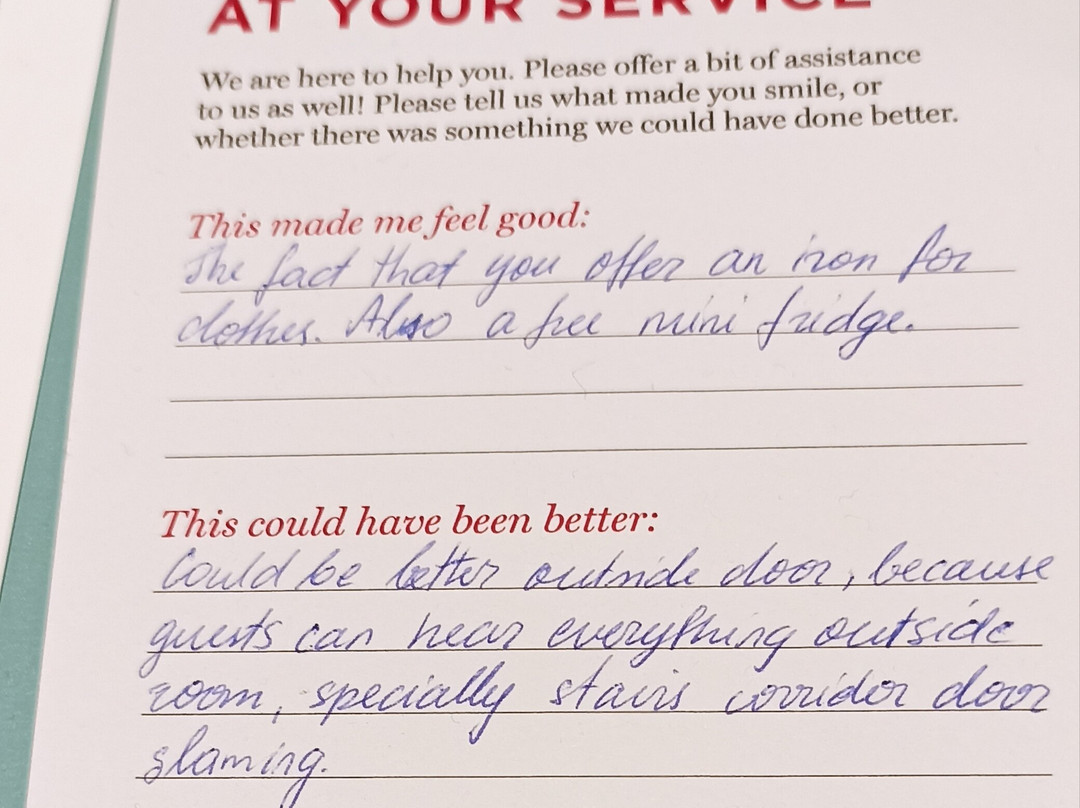 AT YOUR SERVICE
We are here to help you. Please offer a bit of assistance
to us as well! Please tell us what made you smile, or
whether there was something we could have done better.
This made me feel good:
The fact that you offer an iron for
clothes. Also a free mini fridge.
This could have been better:
Could be better outside door, because
guests can hear everything outside
room, specially stairs corridor door
slaming.